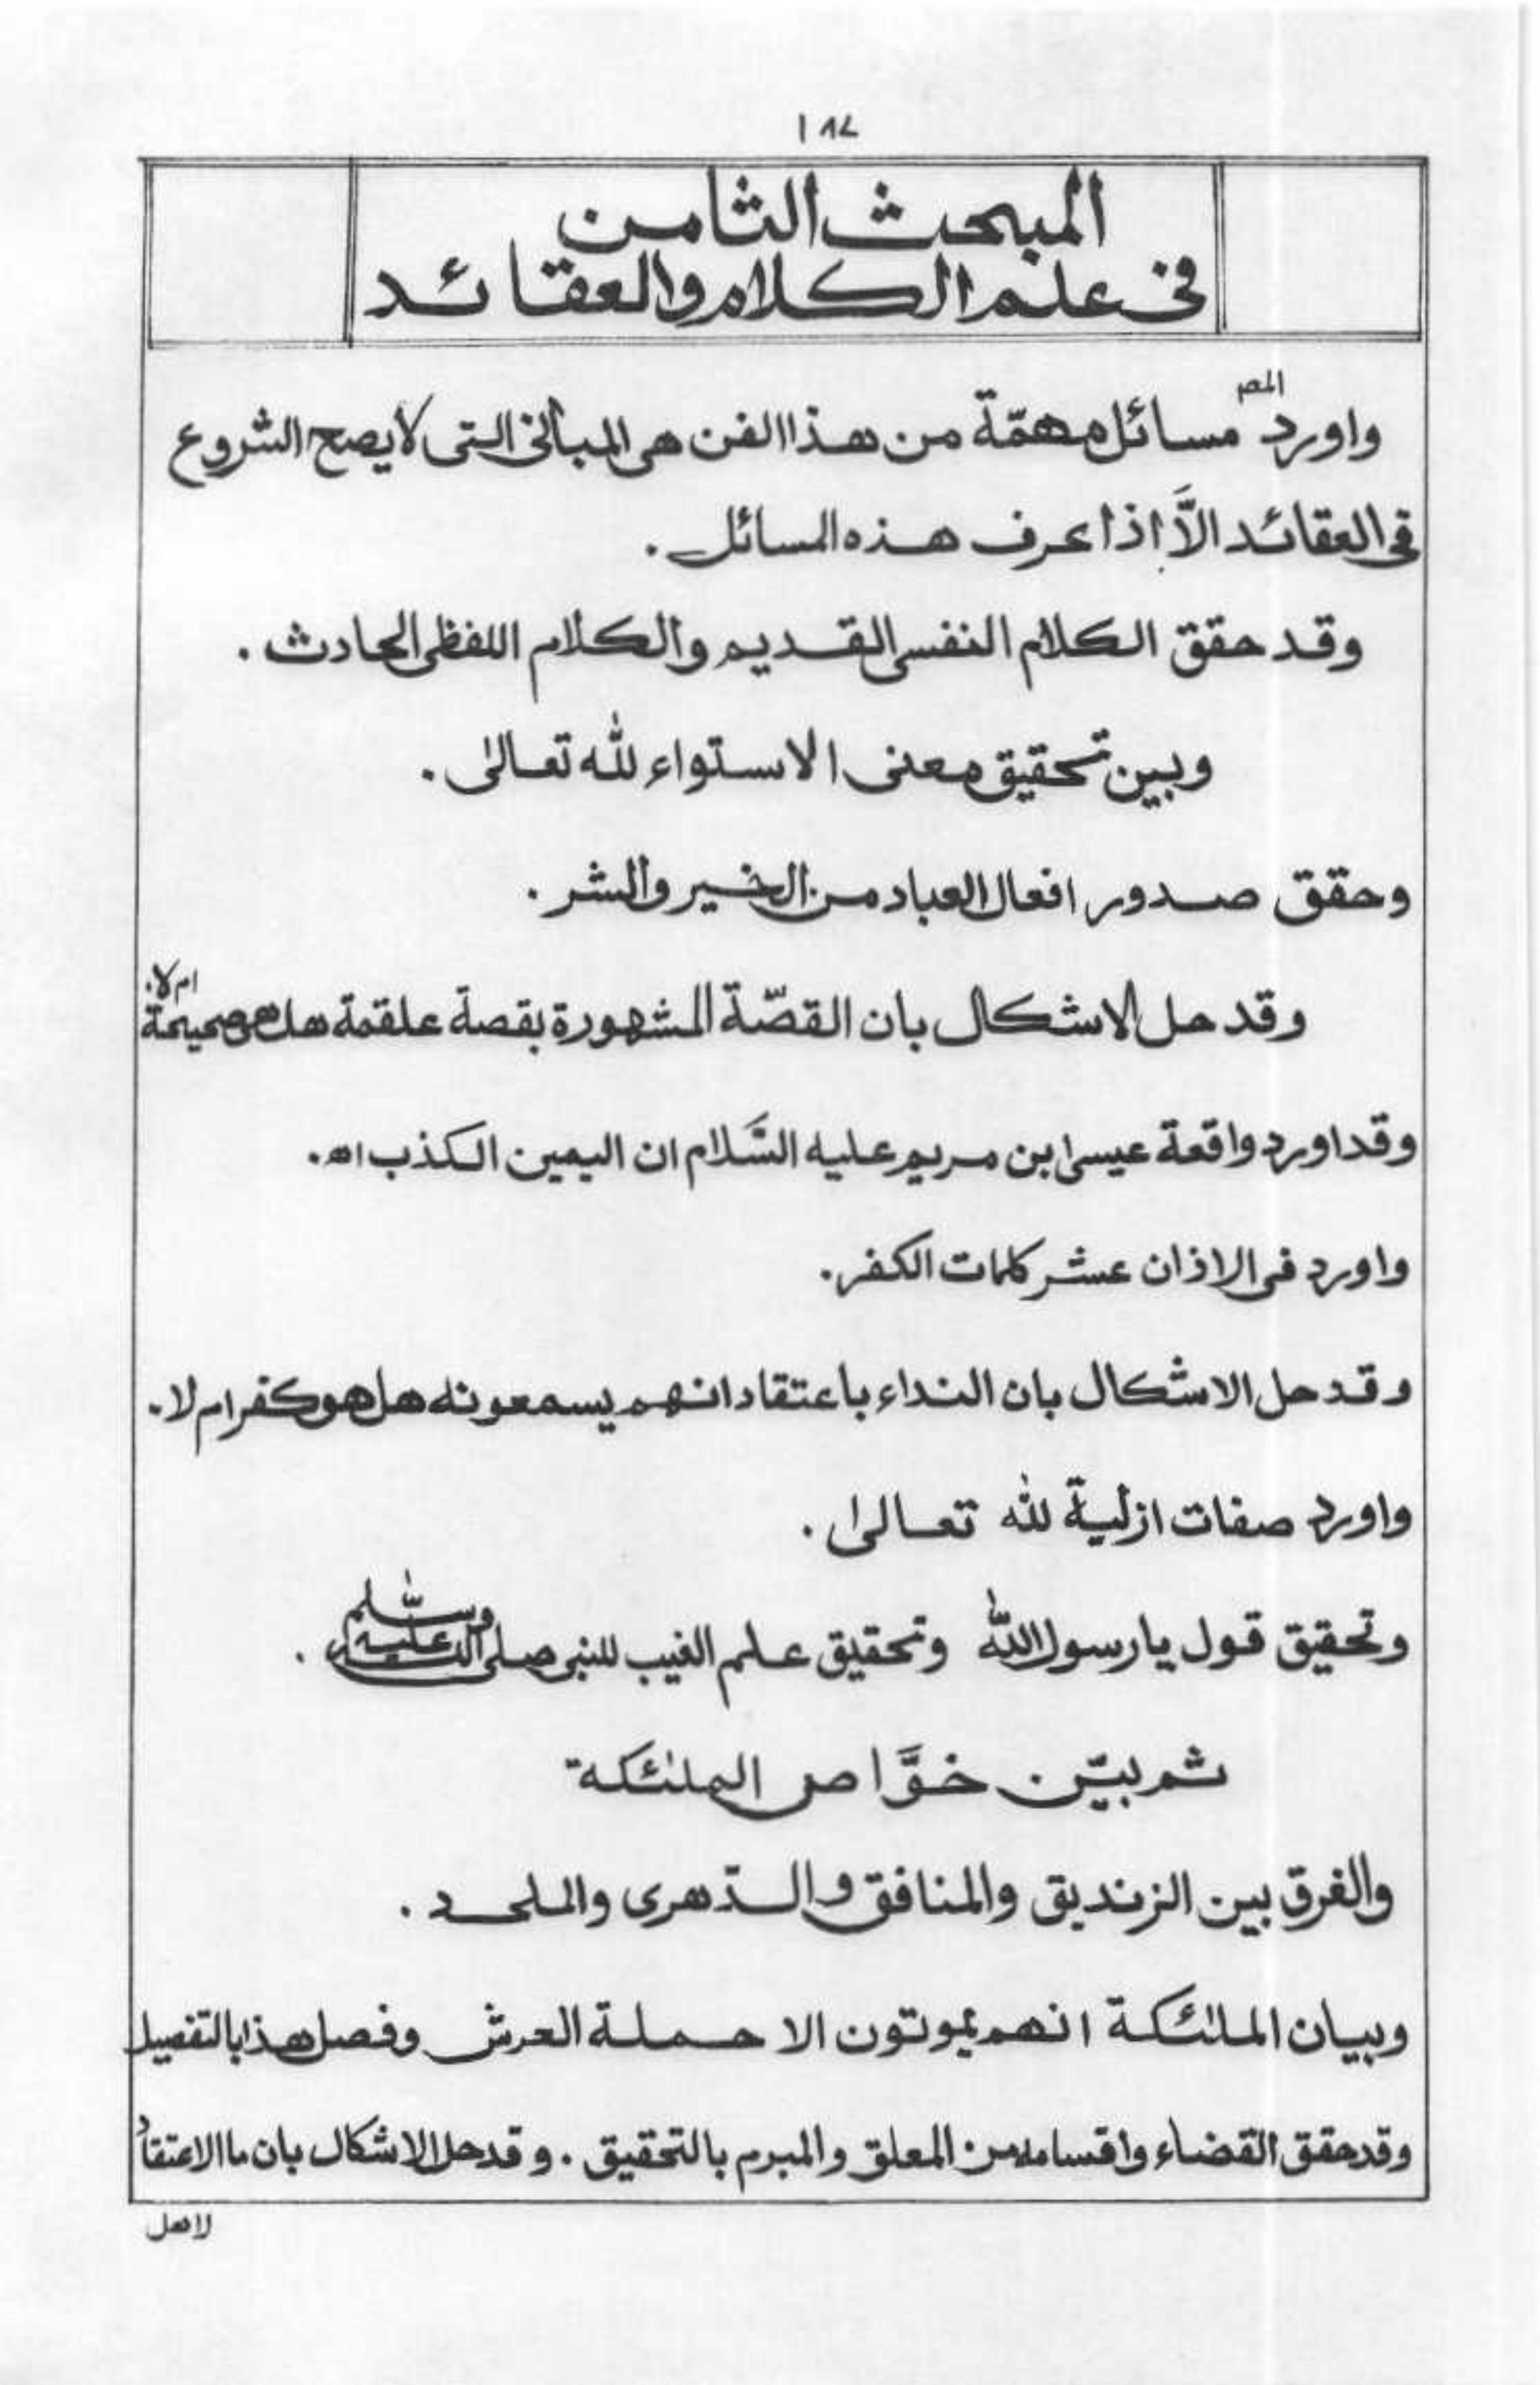 ١٨٧
المبحث الثامن
فى علم الكلام والعقائد
واورد المصـ مسائل مهمّة من هذا الفن هى المبانى التى لا يصح الشروع
فى العقائد الاَّ اذا عرف هذه المسائل .
وقد حقق الكلام النفسى القديم والكلام اللفظى الحادث .
وبين تحقيق معنى الاستواء لله تعالىٰ .
وحقق صدور افعال العباد من الخير والشر .
وقد حل الاشكال بان القصّة المشهورة بقصة علقمة هل هى صحيحة ام لا.
وقد اورد واقعة عيسى ابن مريم عليه السَّلام ان اليمين الكذب اھ.
واورد فى الاذان عشر كلمات الكفر.
وقد حل الاشكال بان النداء باعتقاد انهم يسمعونه هل هو كفر ام لا.
واورد صفات ازلية لله تعالىٰ .
وتحقيق قول يا رسول الله وتحقيق علم الغيب للنبى صلى الله عليه وسلّم .
ثم بيّن خوَّاص الملئكة
والفرق بين الزنديق والمنافق والدّهرى والملحد .
وبيان الملئكة انهم يموتون الا حملة العرش وفصل هذا بالتفصيل
وقد حقق القضاء واقسامه من المعلق والمبرم بالتحقيق . وقد حل الاشكال بان ما الاعتقاد
لاهل